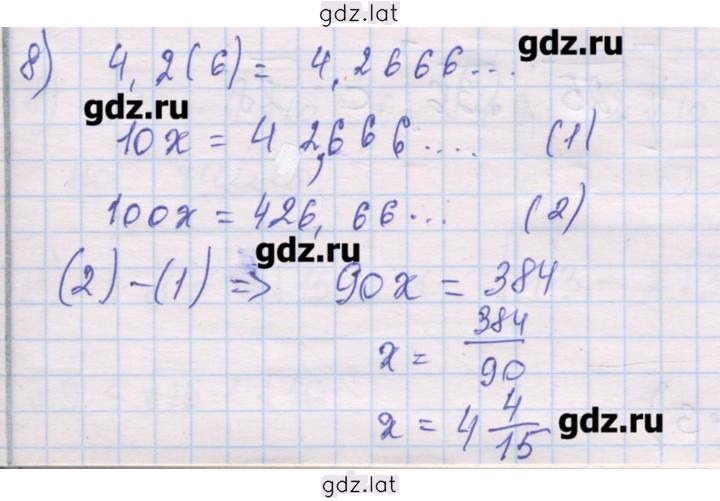 gdz.lat
8) 4,2(6) = 4,2666...
gdz.lat
gdz.lat
10x = 42,666.... (1)
100x = 426,66... (2)
gdz.lat
(2) - (1) => 90x = 384
x = 384/90
x = 4 4/15
gdz.lat
gdz.lat